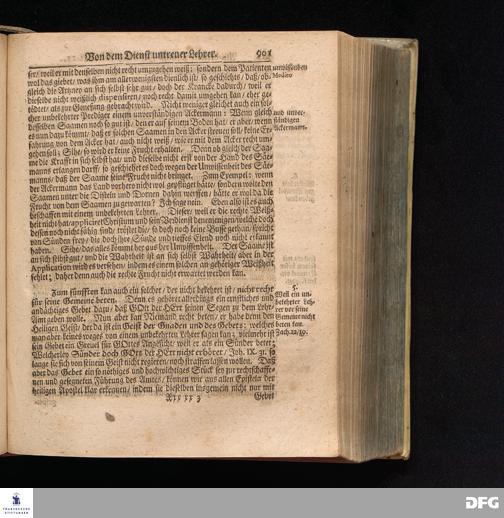 Von dem Dienst untreuer Lehrer. 901
ser/ weil er mit denselben nicht recht umzugehen weiß; sondern dem Patienten
wol das giebet/ was ihm am allerwenigsten dienlich ist/ so geschiehts/ daß/ ob
gleich die Artzney an sich selbst sehr gut/ doch der Krancke dadurch/ weil er
dieselbe nicht weißlich dispensiren/ und recht damit umgehen kan/ eher ge-
tödtet/ als zur Genesung gebracht wird. Nicht weniger gleichet auch ein sol-
cher unbekehrter Prediger einem unverständigen Ackermann: Wenn gleich
desselben Saamen noch so gut ist/ den er auf seinem Boden hat/ er aber/ wenn
es nun dazu kömt/ daß er solchen Saamen in den Acker streuen soll/ keine Er-
fahrung von dem Acker hat/ auch nicht weiß/ wie er mit dem Acker recht um-
gehen soll; Sihe/ so wird er keine Frucht erhalten. Denn ob gleich der Saa-
me die Krafft in sich selbst hat/ und dieselbe nicht erst von der Hand des Säe-
manns erlangen darff; so geschiehet es doch wegen der Unwissenheit des Säe-
manns/ daß der Saame seine Frucht nicht bringet. Zum Exempel: wenn
der Ackermann das Land vorhero nicht wol gepflüget hätte/ sondern wolte den
Saamen unter die Disteln und Dornen dahin werffen/ hätte er wol da die
Frucht von dem Saamen zu gewarten? Ich sage nein. Eben also ist es auch
beschaffen mit einem unbekehrten Lehrer.
von Sünden frey/ die doch ihre Sünde und tieffes Elend noch nicht erkannt
haben. Sihe/ das alles kommt her aus der Unwissenheit. Der Saame ist
an sich selbst gut/ und die Wahrheit ist an sich selbst Wahrheit/ aber in der
Application wird es versehen/ indem es einem solchen an gehöriger Weißheit
fehlet; daher denn auch die rechte Frucht nicht erwartet werden kan.
Zum fünfften kan auch ein solcher/ der nicht bekehret ist/ nicht recht
für seine Gemeine beten. Denn es gehöret allerdings ein ernstliches und
andächtiges Gebet dazu/ daß GOtt der HErr seinen Segen zu dem Lehr-
Amt geben wolle. Nun aber kan Niemand recht beten/ er habe denn den
Heiligen Geist/ der da ist ein Geist der Gnaden und des Gebets: welches
man aber keines weges von einem unbekehrten Lehrer sagen kan; vielmehr ist
sein Gebet ein Greuel für GOttes Angesicht/ weil er als ein Sünder betet;
Welcherley Sünder doch GOtt der HErr nicht erhöret/ Joh. IX. 31. so
lange sie sich von seinem Geist nicht regieren/ noch straffen lassen wollen. Daß
aber das Gebet ein so nöthiges und hochwichtiges Stück sey zur rechtschaffe-
nen und gesegneten Führung des Amtes/ können wir aus allen Episteln der
heiligen Apostel klar erkennen/ indem sie dieselben insgemein nicht nur mit
Xxx xx 3 Gebet
unwissenden
Medico
und unver-
ständigen
Ackermann.
5.
Weil ein un-
bekehrter Leh-
rer vor seine
Gemeine nicht
beten kan.
Zach. 12/10.
FRANCKESCHE
STIFTUNGEN
DFG